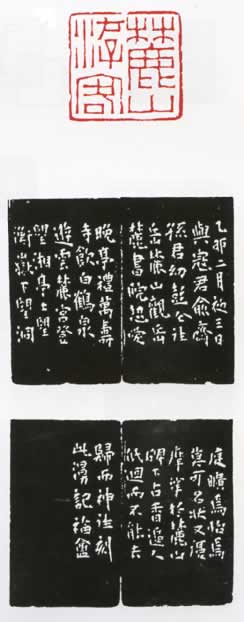 麓山
游客
乙卯二月初三日
與憲君俞齋
孫君幼 公往
岳麓山觀岳
麓書院 愛
晚亭禮萬壽
寺飲白鶴泉
遊雲麓宮登
望湘亭上望
衡嶽下望洞
庭曠焉怡焉
莫可名狀又復
摩挲於麓山
碑下古香逼人
低徊而不能去
歸而神往刻
此漫記福盦